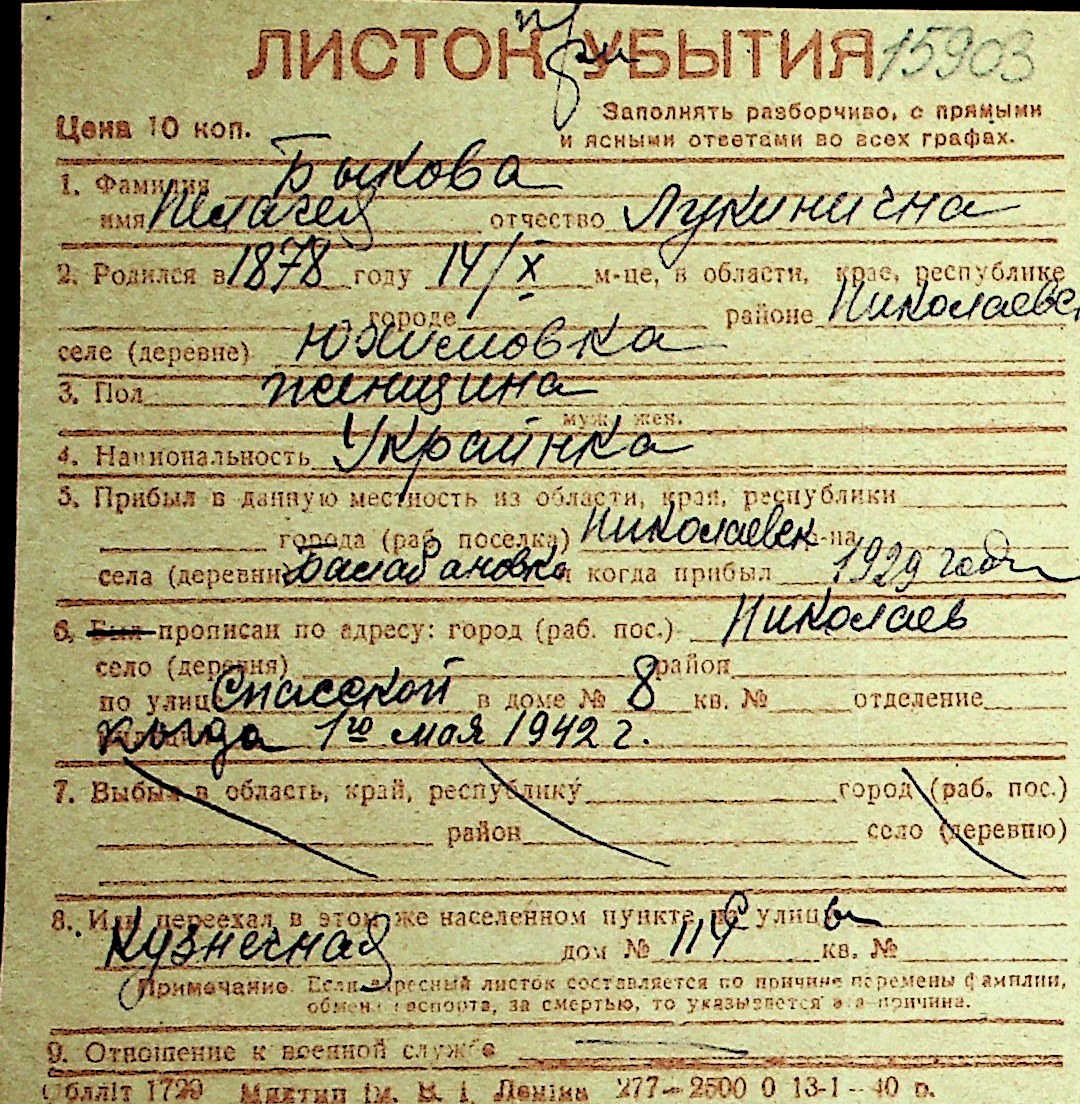 ЛИСТОК при УБЫТИЯ 15903
Цена 10 коп.
Заполнять разборчиво, с прямыми
и ясными ответами во всех графах.
1. Фамилия Быкова
имя Пелагея отчество Лукинична
2. Родился в 1878 году 14/X м-це, в области, крае, республике
городе районе Николаевск
селе (деревне) Юхимовка
3. Пол женщина
муж. жен.
4. Национальность Украинка
5. Прибыл в данную местность из области, края, республики
города (раб. поселка) Николаевск р-на
села (деревни) Балабановка и когда прибыл 1929 году
6. Был прописан по адресу: город (раб. пос.) Николаев
село (деревня) район
по улице Спасской в доме № 8 кв. № отделение
Когда 1го мая 1942 г.
7. Выбыл в область, край, республику город (раб. пос.)
район село (деревню)
8. Или переехал в этом же населенном пункте с улицы
Кузнечная дом № 119 кв. №
Примечание. Если адресный листок составляется по причине перемены фамилии,
обмена паспорта, за смертью, то указывается эта причина.
9. Отношение к военной службе
Обллiт 1729 iм. В. I. Ленiна 277—2500 0 13-1-40 р.